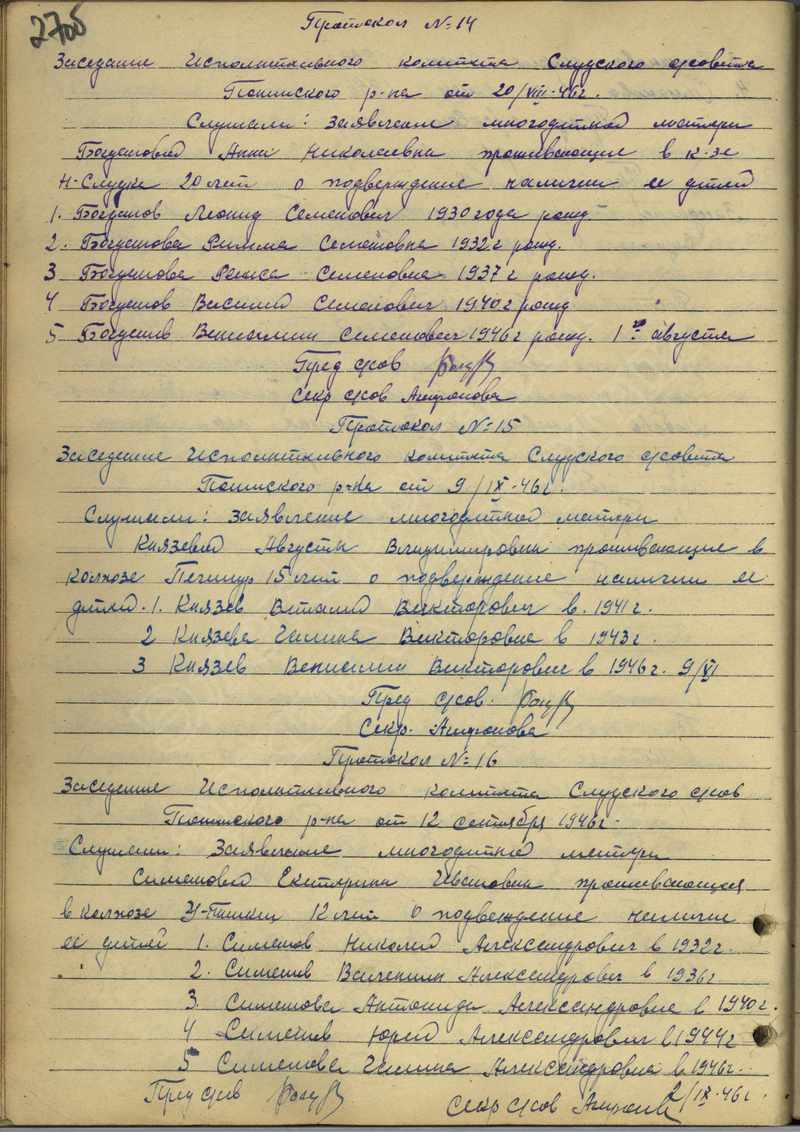 270б
Протокол №14
Заседание Исполнительного комитета Слудского с/совета
р-на от 20/VIII-46г.
Слушали: Заявление многодетной матери
Богдановой Анны Николаевны проживающие в к-зе
20 лет о подверждение наличии ее детей
1. Богданов Леонид Семенович 1930 года рожд.
2. Богданова Римма Семеновна 1932г рожд.
3 Богданова Семеновна 1937г рожд.
4 Богданов Василий Семенович 1940г рожд
5 Богданов Вениамин Семенович 1946г рожд. 1го августа
Пред с/сов
Секр с/сов
Протокол №15
Заседание Исполнительного комитета Слудского с/совета
р-на от 9/IX-46г.
Слушали: Заявление многодетной матери
Князевой Августы Владимировны проживающие в
колхозе 15 лет о подверждение наличии ее
детей. 1. Князев Виталий Викторович в. 1941г.
2 Князева Галина Викторовна в 1943г.
3 Князев Вениамин Викторович в 1946г. 9/VI
Пред с/сов.
Секр.
Протокол №16
Заседание Исполнительного комитета Слудского с/сов
р-на от 12 сентября 1946г.
Слушали: Заявление многодетной матери
Симановой Екатерины Ивановны проживающая
в колхозе 12 лет о подвеждение наличии
ее детей 1. Симанов Николай Александрович в 1932г.
2. Симанов Валентин Александрович в 1936г
3. Симанова Антонида Александровна в 1940г.
4 Симанов Юрий Александрович в 1944г
5 Симанова Галина Александровна в 1946г.
Пред с/сов
Секр с/сов 2/IX-46г.